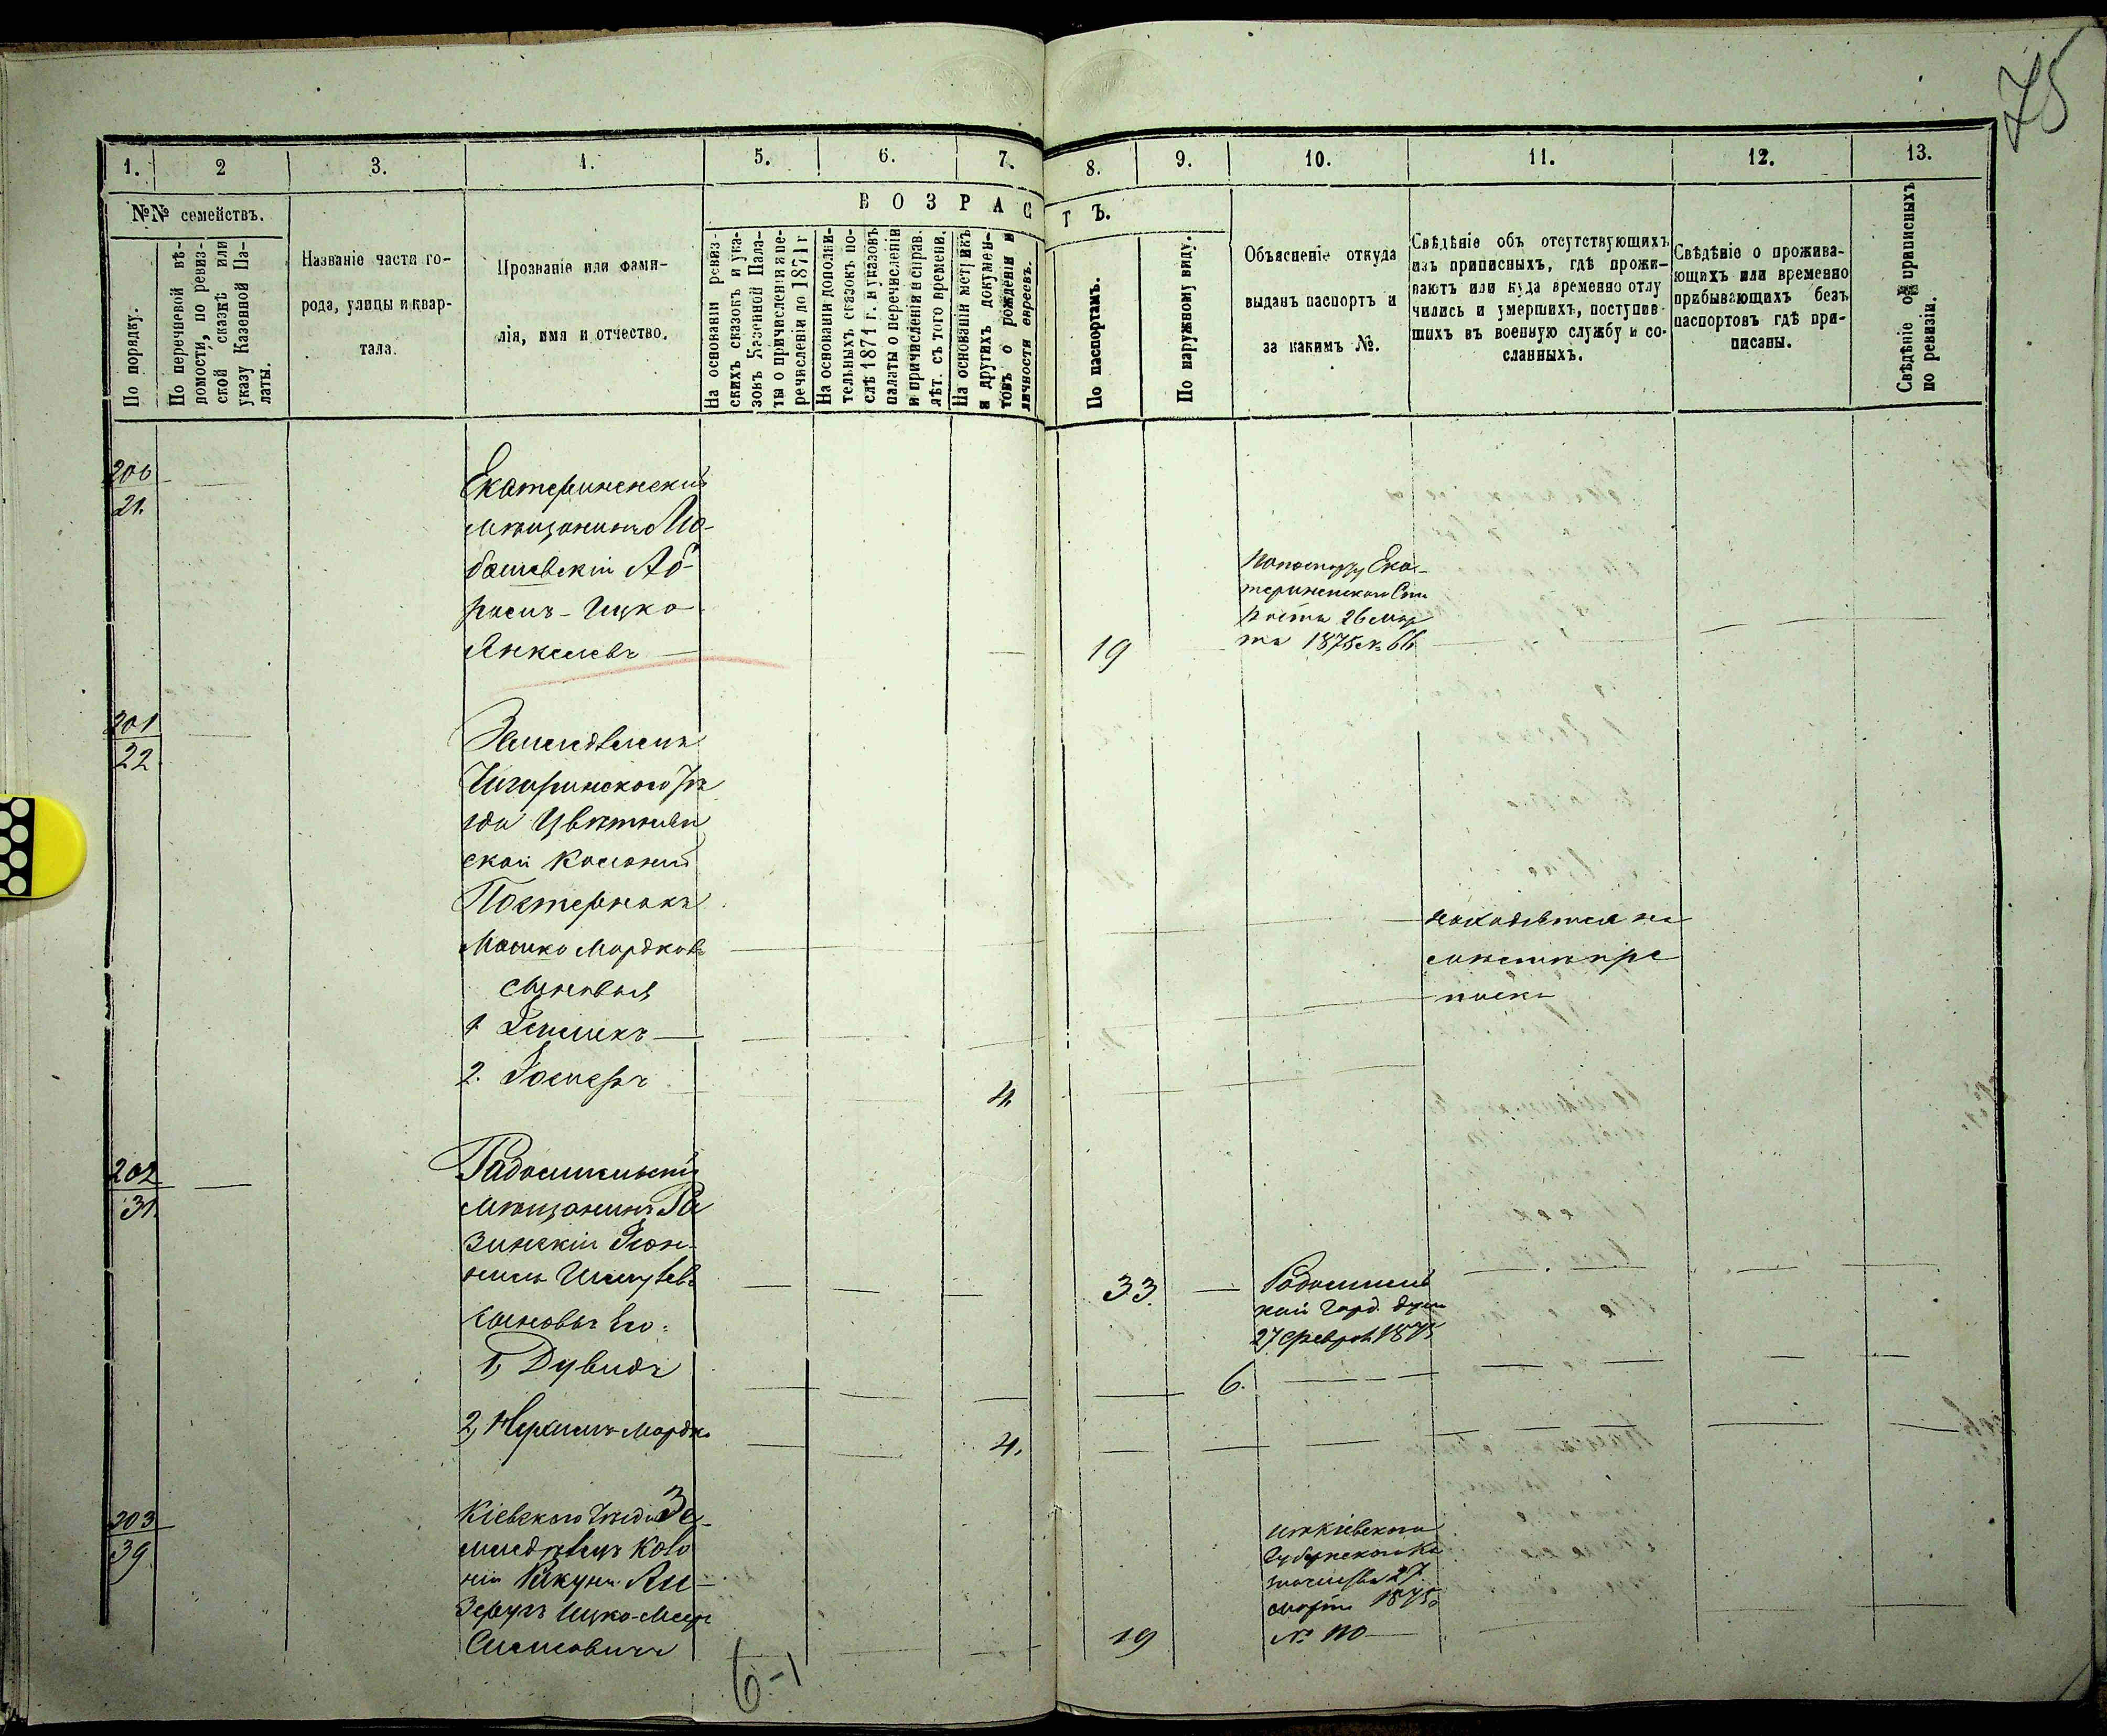 75
1. 2 3. 4. 5. 6. 7. 8. 9. 10. 11. 12. 13.
№№ семействъ.
По порядку.
По перечневой вѣ-
домости, по ревиз-
ской сказкѣ или
указу Казенной Па-
латы.
Названіе части го-
рода, улицы и квар-
тала.
Прозваніе или фами-
лія, имя и отчество.
ВОЗРАСТЪ.
На основаніи ревиз-
скихъ сказокъ и ука-
зовъ Казенной Пала-
ты о причисленіи и пе-
речисленіи до 1871 г
На основаніи дополни-
тельныхъ сказокъ по-
слѣ 1871 г. и указовъ
палаты о перечисленіи
и причисленіи и справ.
лѣт. съ того времени.
На основаніи метрикъ
и другихъ докумен-
товъ о рожденіи и
личности евреевъ.
По паспортамъ.
По наружному виду.
Объясненіе откуда
выданъ паспортъ и
за какимъ №.
Свѣдѣніе объ отсутствующихъ
изъ приписныхъ, гдѣ прожи-
ваютъ или куда временно отлу
чились и умершихъ, поступив-
шихъ въ военную службу и со-
сланныхъ.
Свѣдѣніе о прожива-
ющихъ или временно
прибывающихъ безъ
паспортовъ гдѣ при-
писаны.
Свѣдѣніе о приписныхъ
по ревизіи.
200
21.
Екатерининскій
мѣщанинъ
Аб-
рамъ-Ицко
Янкелевъ
19
Ека-
терининского
26 мар
та 1875 № 66
201
22
Земледѣлецъ
Чигиринского Уѣ
зда
ской Колоніи
Постернакъ
Мошко Мордковъ
сыновья
1
2.
4
находится на
мѣстѣ при
писки
202
31.
Радомисльскій
мѣщанинъ Ра
зинскій
сыновья его:
1, Дувидъ
2, Нухимъ Мордко
33.
6.
4.
Радомысль
кой Город. думы
27 Февраля 1875
203
39
Кіевского Уѣзда Зе-
мледѣлецъ Коло
ніи
Ицко-Меер
19
изъ Кіевского
Губернского Ка
значейства 27
марта 1875
№ 110
6-1